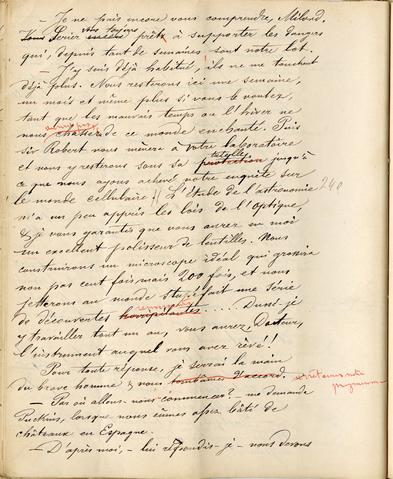 — Je ne puis encore vous comprendre, Milord.
Vous serier toujours prêts à supporter les dangers
qui, depuis tant de semaines sont notre lot.
— J'y suis déjà habitué; ils ne me touchent
déjà plus. Nous resterons ici une semaine,
un mois et même plus si vous le voulez,
tant que les mauvais temps ou l'hiver ne
nous chassera de ce monde enchanté. Puis
sir Robert nous mènera à votre laboratoire
et nous y resterons sous sa tutelle protection jusqu'à
ce que nous ayons achevé notre enquête sur
le monde cellulaire!! L'étude de l'astronomie 240
m'a un peu appris les lois de l'Optique,
& je vous garantis que vous aurez en moi
un excellent polisseur de lentilles. Nous
construirons un microscope idéal qui grossira
non pas cent fois, mais 200 fois, et nous
jetterons au monde stupéfait une série
de découvertes horripilantes .... Dussé-je
y travailler tout un an, vous aurez, Docteur,
l'instrument auquel vous avez rêvé!
Pour toute réponse, je serrai la main
du brave homme & nous tombâmes d'accord.
— Par où allons-nous commencer? — me demanda
Puckins, lorsque nous eûmes assez bâti de
châteaux en Espagne.
— D'après moi, — lui répondis-je — nous devons